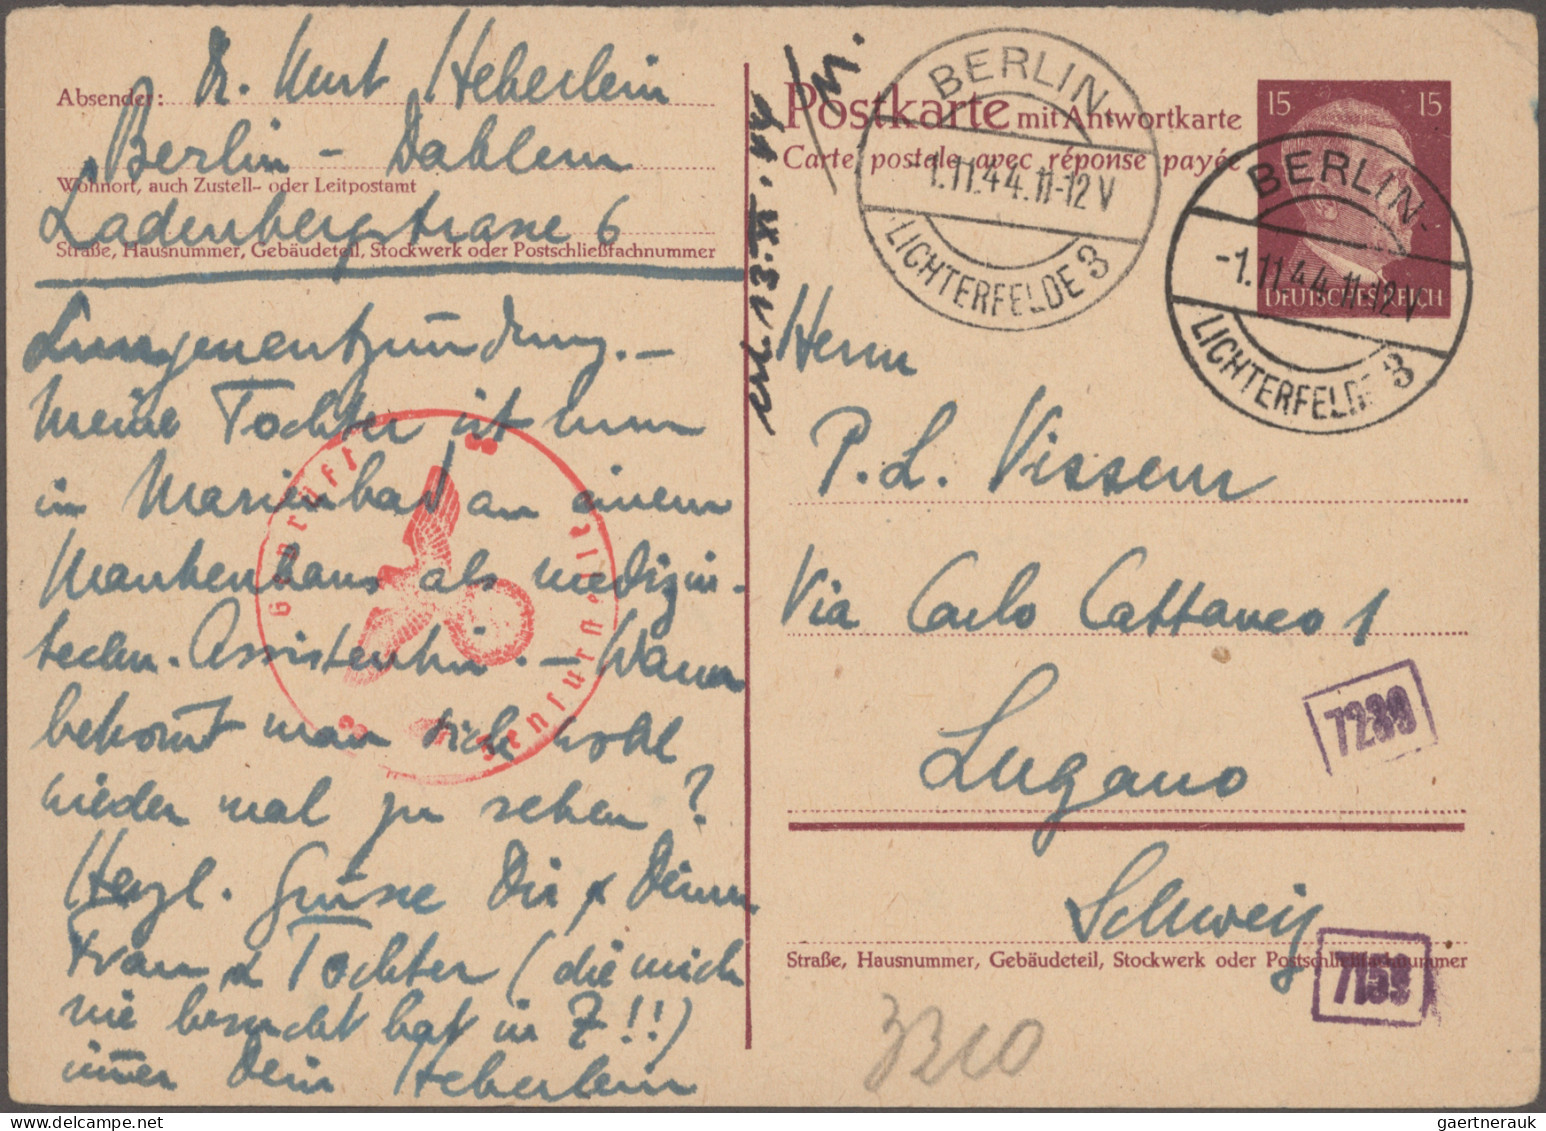 Absender: Dr. Kurt Heberlein
Berlin - Dahlem
Wohnort, auch Zustell- oder Leitpostamt
Ladenbergstrasse 6
Straße, Hausnummer, Gebäudeteil, Stockwerk oder Postschließfachnummer
Lungenentzündung. –
Meine Tochter ist nun
in Marienbad an einem
Krankenhaus als medizin-
techn. Assistentin. – Wann
bekommt man sich wohl
wieder mal zu sehen?
Herzl. Grüsse Dir & Deiner
Frau & Tochter (die mich
nie besucht hat in Z!!)
immer Dein Heberlein
Geprüft
Zensurstelle
erh. 13. XI. 44
Postkarte mit Antwortkarte
Carte postale avec réponse payée
BERLIN-
-1.11.44.11-12V
LICHTERFELDE 3
15 15
DEUTSCHES REICH
BERLIN-
-1.11.44.11-12V
LICHTERFELDE 3
Herrn
P. L. Vissem
Via Carlo Cattaneo 1
Lugano
7289
Schweiz
Straße, Hausnummer, Gebäudeteil, Stockwerk oder Postschließfachnummer
7159
gaertnerauk @ delcampe.net